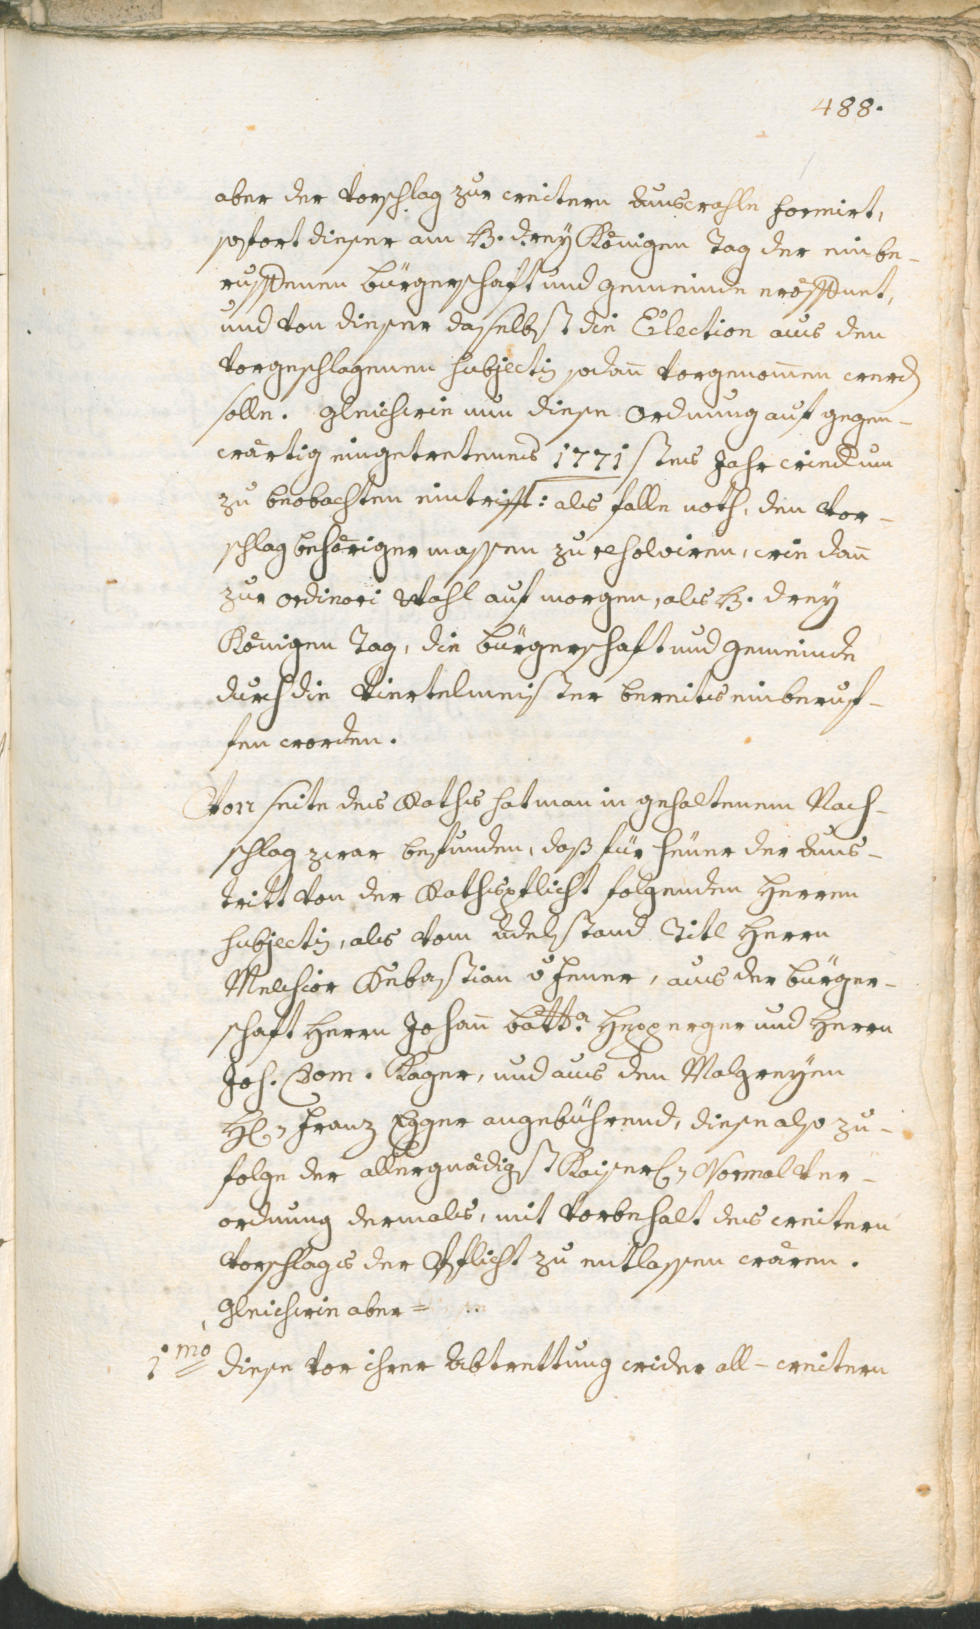 488.
aber der Vorschlag zur weitern Auswahle formirt,
sofort dieser am H. drey Königen Tag der einbe-
ruffenen bürgerschafft und gemeinde eröffnet,
und von dieser daselbst die Election aus den
vorgeschlagenen Subjectis sodañ vorgenom̃en werd
solle. Gleichwie nun diese Ordnung auf gegen-
wärtig eingetretenes 1771 stes Jahr wiedeum
zu beobachten eintrifft: als falle noth, den Vor-
schlag behöriger massen zu resolviren, wie dañ
zur ordinari Wahl auf morgen, als H. drey
Königen Tag, die bürgerschafft und gemeinde
durch die Viertelmeister bereits einberuf-
fen worden.
Von seite des Raths hat man in gehaltenem Rath-
schlag zwar befunden, daß für heüer der Aus-
tritt von der Rathspflicht folgenden Herren
Subjectis, als vom Adelstand Titl Herrn
Melchior Sebastian v Jenner, aus der bürger-
schaft Herrn Johañ batt:a Hepperger und Herrn
Jos. Dom. Rager, und aus den Malgreyen
H: Franz Egger angebührend, diese also zu-
folge der allergnädigst Kayserl: Normal Ver-
ordnung dermals, mit Vorbehalt des weitern
Vorschlags der Pflicht zu entlassen wären.
Gleichwie aber =
1mo diese vor ihrer Abtrettung wider all-weitern